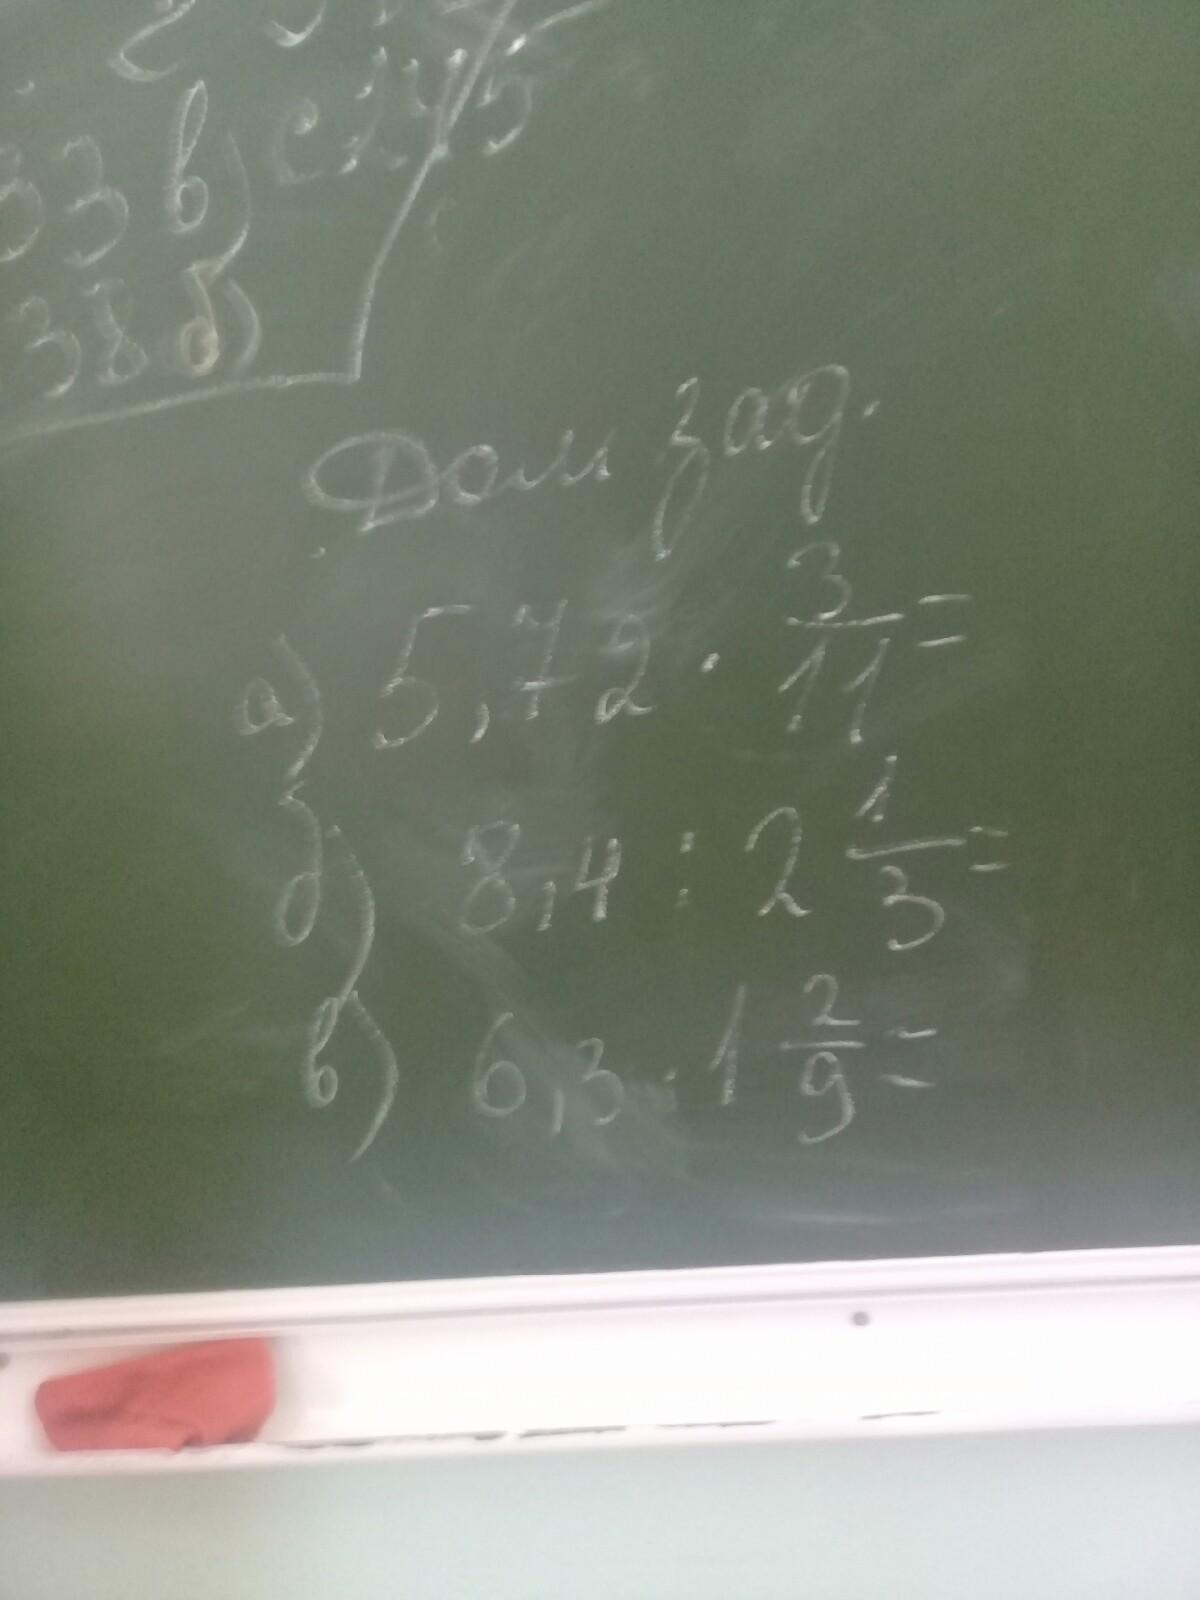 33 в) с 245
38 б)
Дом зад.
а) 5,72 · 3/11 =
б) 8,4 : 2 1/3 =
в) 6,3 · 1 2/9 =